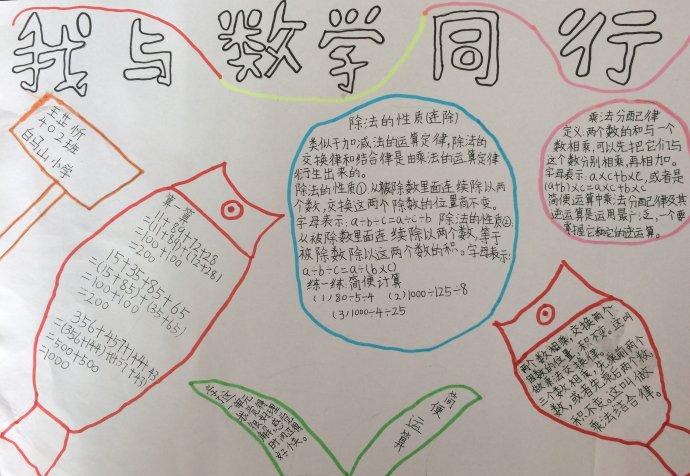 我与数学同行
王芷忻
402班
白马山小学
除法的性质(连除)
类似于加减法的运算定律,除法的
交换律和结合律是由乘法的运算定律
衍生出来的。
除法的性质①:从被除数里面连续除以两
个数,交换这两个除数的位置商不变。
字母表示:a÷b÷c=a÷c÷b 除法的性质②:
从被除数里面连续除以两个数,等于
被除数除以这两个数的积。字母表示:
a÷b÷c=a÷(b×c)
练一练:简便计算
(1)80÷5÷4 (2)1000÷125÷8
(3)1000÷4÷25
乘法分配律
定义:两个数的和与一个
数相乘,可以先把它们与
这个数分别相乘,再相加。
字母表示:a×c+b×c,或者是
(a+b)×c=a×c+b×c
简便运算中乘法分配律及其
逆运算是运用最广泛,一个要
掌握它和它的逆运算。
算一算
11+89+72+28
=(11+89)+(72+28)
=100+100
=200
15+35+85+65
=(15+85)+(35+65)
=100+100
=200
356+457+144+43
=(356+144)+(457+43)
=500+500
=1000
两个数相乘,交换两个
因数的位置,积不变。这叫
做乘法交换律。
三个数相乘,先乘前两个
数,或者先乘后两个数,
积不变。这叫做
乘法结合律。
学这一单元
我觉得
很好理
解,感觉
时间过得
好快。
简便
运算